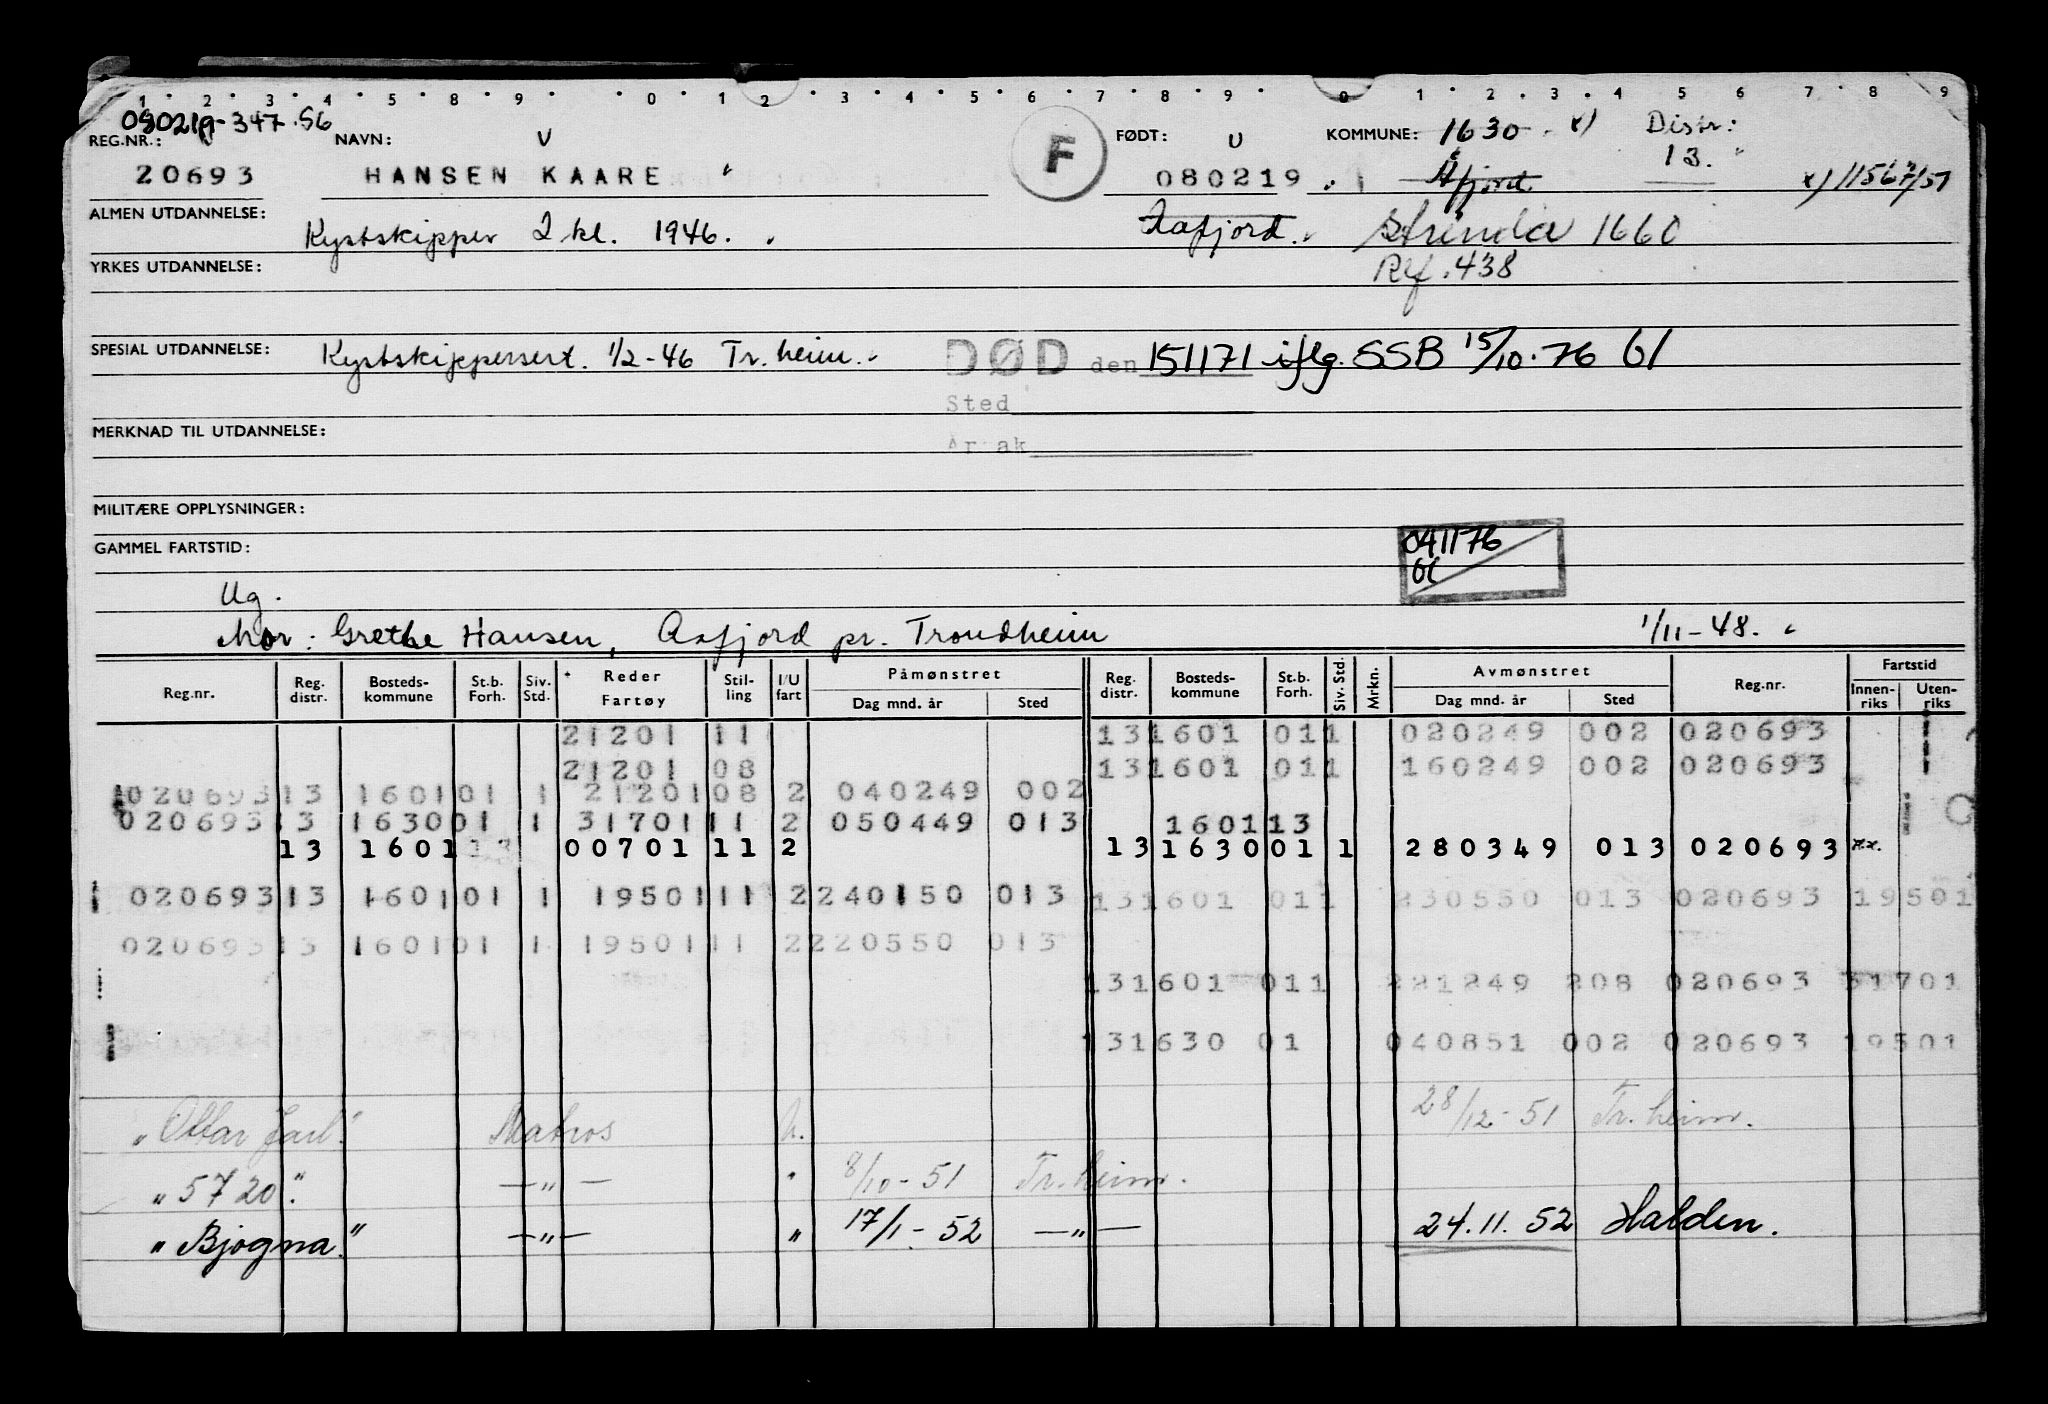 1 2 3 4 5 8 9 0 1 2 3 4 5 6 7 8 9 0 1 2 3 4 5 6 7 8 9
080219-347.56
REG.NR.: NAVN: V F FØDT: U KOMMUNE: 1630. x) Distr:
13.
20693 HANSEN KAARE 080219 Åfjord x) 11567/51
ALMEN UTDANNELSE: Kystskipper 2 kl. 1946. Aafjord. Strinda 1660
YRKES UTDANNELSE: Ref. 438
SPESIAL UTDANNELSE: Kystskippersert. 1/2-46 Tr.heim. DØD den 151171 iflg. SSB 15/10.76 61
Sted
Årsak
MERKNAD TIL UTDANNELSE:
MILITÆRE OPPLYSNINGER:
GAMMEL FARTSTID: 041176
Ug.
Mor: Grethe Hansen, Aafjord pr. Trondheim 1/11-48.
Reg.nr. Reg. distr. Bosteds-kommune St.b. Forh. Siv. Std. Reder Fartøy Stil-ling I/U fart Påmønstret Dag mnd. år Sted Reg. distr. Bosteds-kommune St.b. Forh. Siv. Std. Mrkn. Avmønstret Dag mnd. år Sted Reg.nr. Fartstid Innen-riks Uten-riks
21201 11 131601 011 020249 002 020693
21201 08 131601 011 160249 002 020693
020693 13 1601 01 1 21201 08 2 040249 002
020693 13 1630 01 1 31701 11 2 050449 013 1601 13
13 1601 13 00701 11 2 13 1630 01 1 280349 013 020693 xx.
020693 13 1601 01 1 19501 11 2 240150 013 131601 011 230550 013 020693 19501
020693 13 1601 01 1 19501 11 2 220550 013
131601 011 221249 208 020693 31701
131630 01 040851 002 020693 19501
"Ottar Jarl". Matros U. 28/12-51 Tr.heim.
"5720". —"— " 8/10-51 Tr.heim.
"Bjogna." —"— " 17/1-52 —"— 24.11.52 Halden.